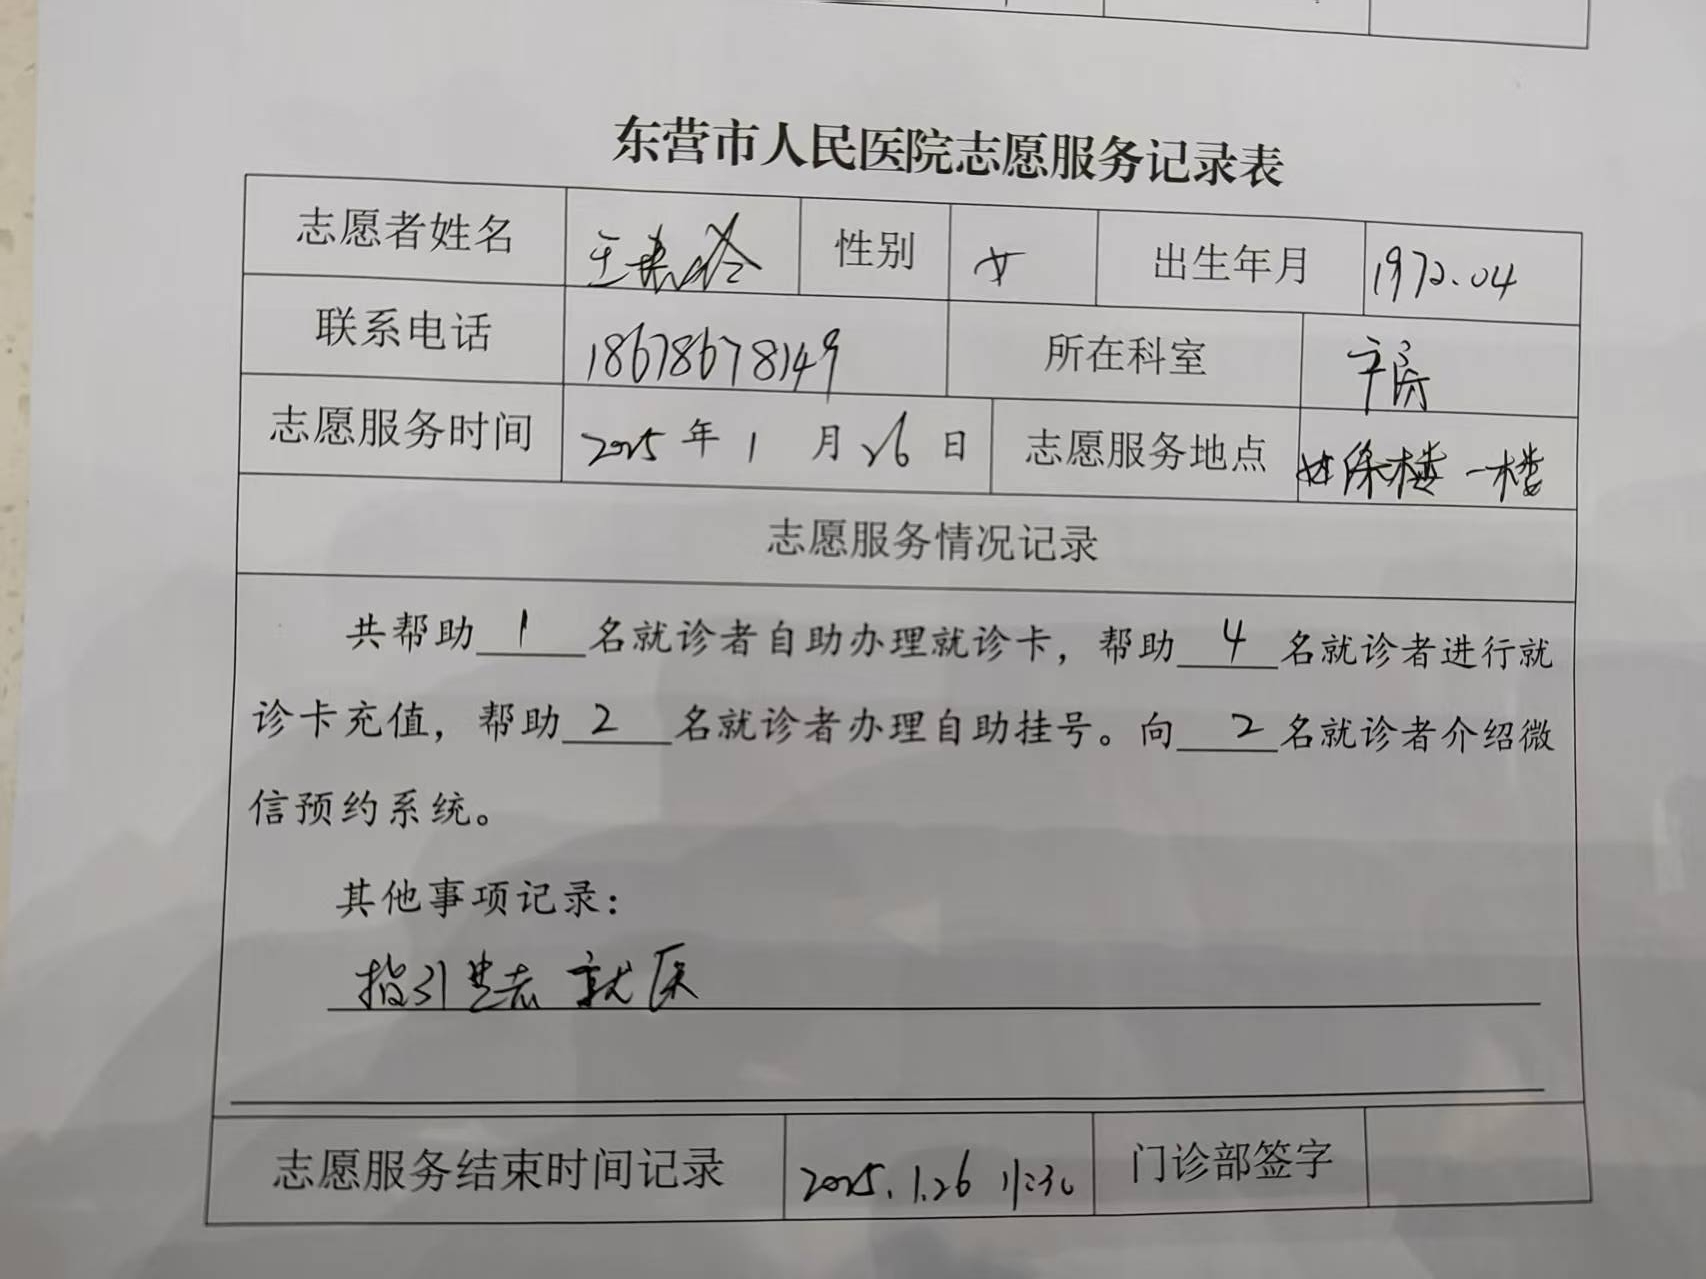 东营市人民医院志愿服务记录表
志愿者姓名 王 性别 女 出生年月 1972.04
联系电话 18678678149 所在科室
志愿服务时间 2025年1月26日 志愿服务地点 楼一楼
志愿服务情况记录
共帮助1名就诊者自助办理就诊卡，帮助4名就诊者进行就
诊卡充值，帮助2名就诊者办理自助挂号。向2名就诊者介绍微
信预约系统。
其他事项记录：
指引患者就医
志愿服务结束时间记录 2025.1.26 11:30 门诊部签字